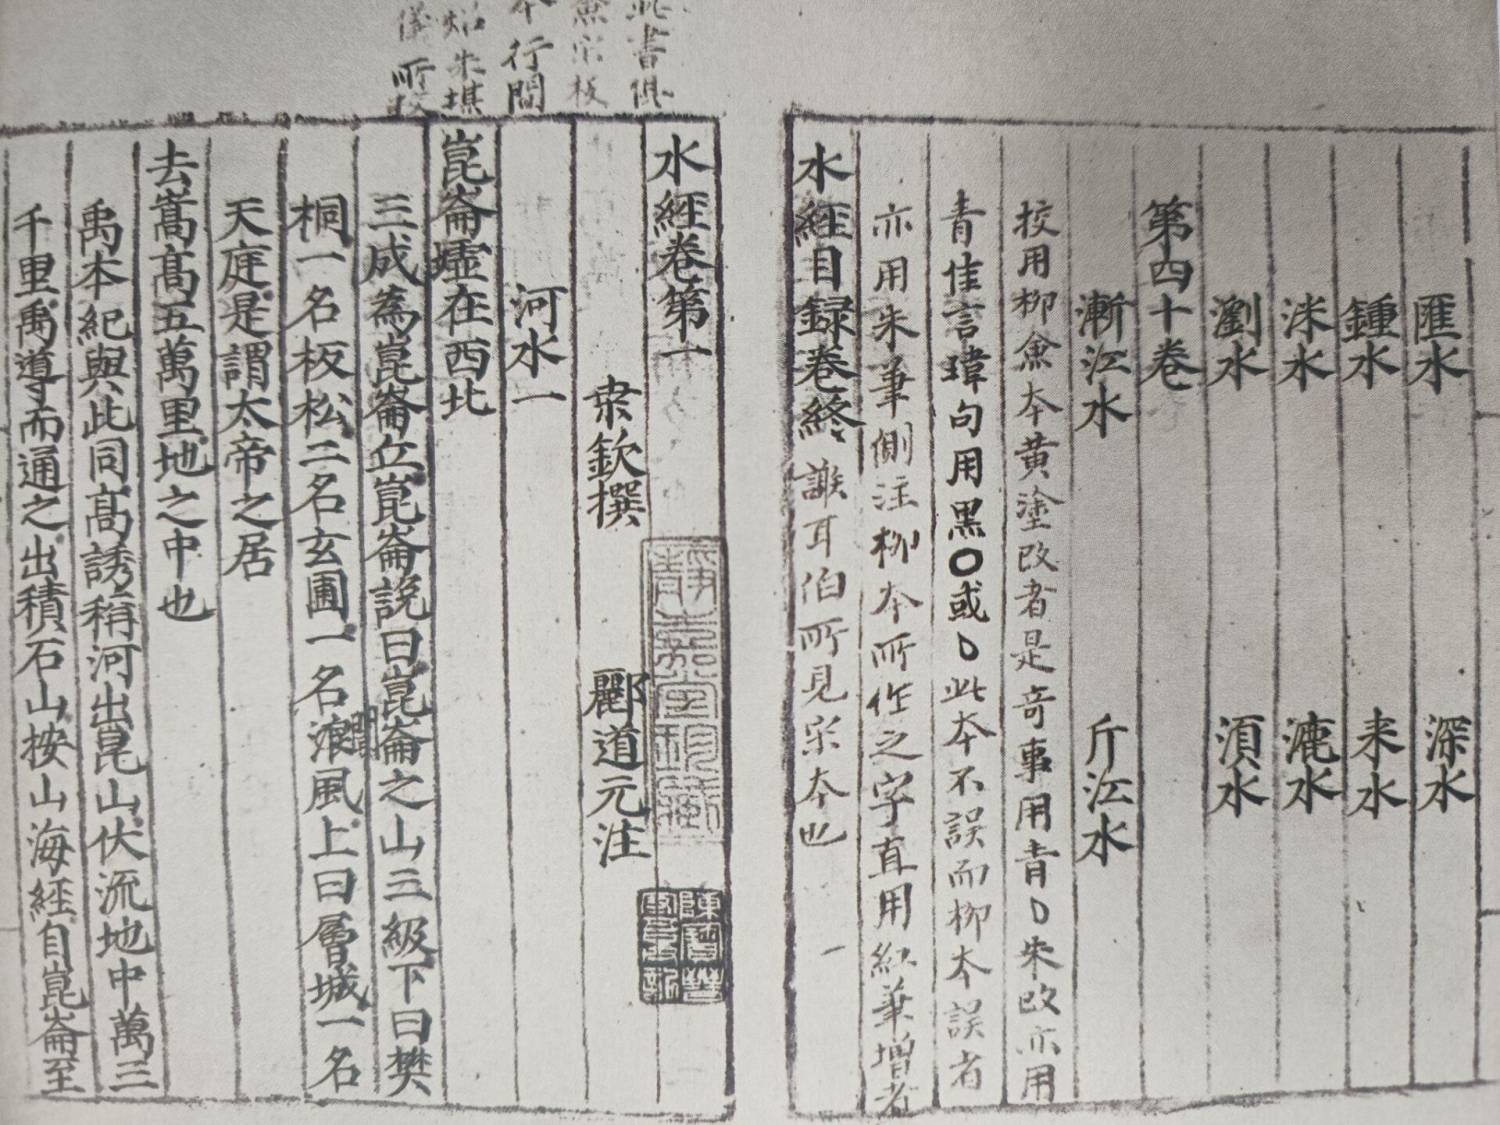 匯水 深水
鍾水 耒水
洣水 漉水
瀏水 湏水
第四十卷
漸江水 斤江水
校用柳僉本黄塗改者是奇事用青乀朱改亦用
青佳言瑋句用黑〇或乀此本不誤而柳本誤者
亦用朱筆側注柳本所作之字直用紅筆增者
水經目録卷終 誰耳伯所見宋本也
此書俱
僉宋板
本行間
始朱堪
儀所校
水經卷第一
桒欽撰 酈道元注
河水一
崑崙墟在西北
三成為崑崙丘崑崙說曰崑崙之山三級下曰樊
桐一名板松二名玄圃一名浪風上曰層城一名
閬
天庭是謂太帝之居
去嵩髙五萬里地之中也
禹本紀與此同髙誘稱河出崑山伏流地中萬三
千里禹導而通之出積石山按山海經自崑崙至
靜嘉堂珍藏